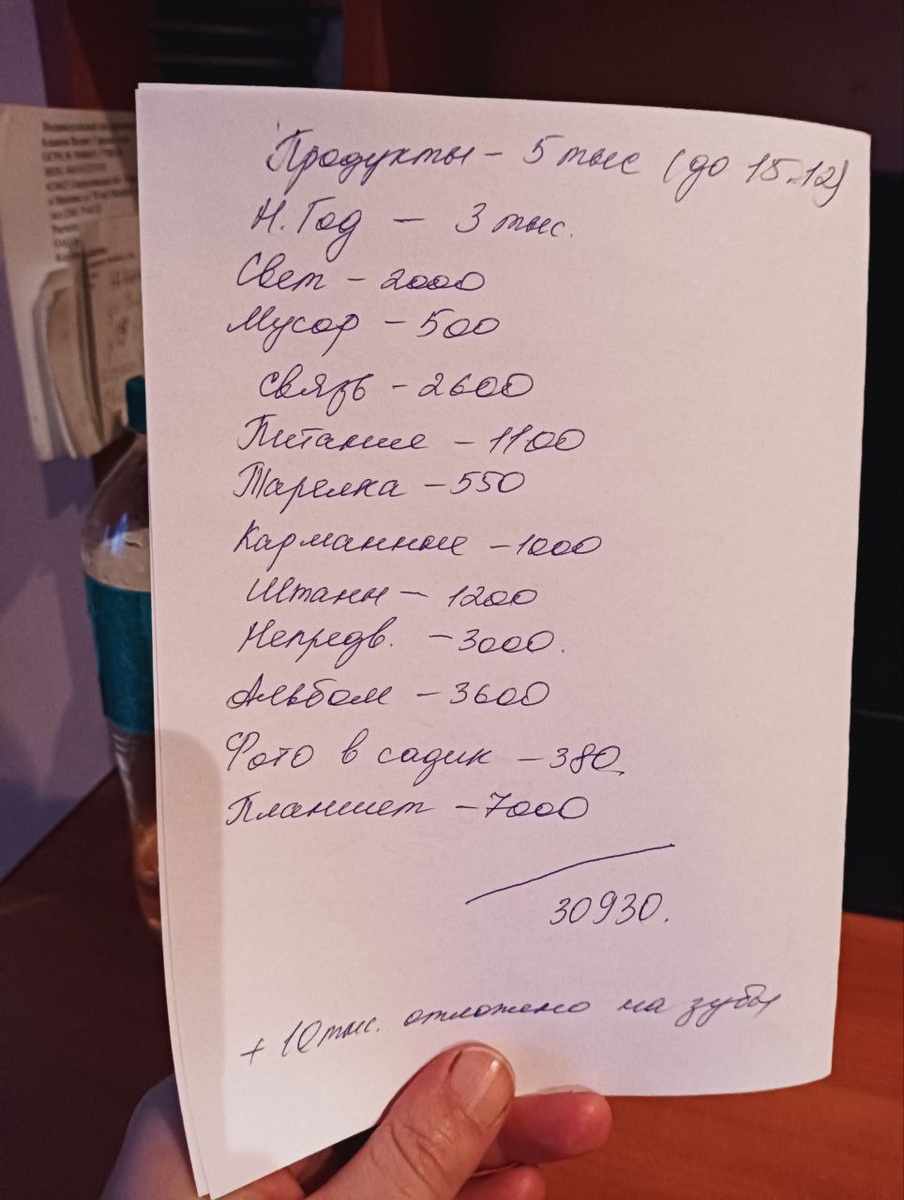 Продукты – 5 тыс (до 15.12)
Н. Год – 3 тыс.
Свет – 2000
Мусор – 500
Связь – 2600
Питание – 1100
Тарелка – 550
Карманные – 1000
Штаны – 1200
Непредв. – 3000.
Альбом – 3600
Фото в садик – 380
Планшет – 7000
30930.
+ 10 тыс. отложено на зубы